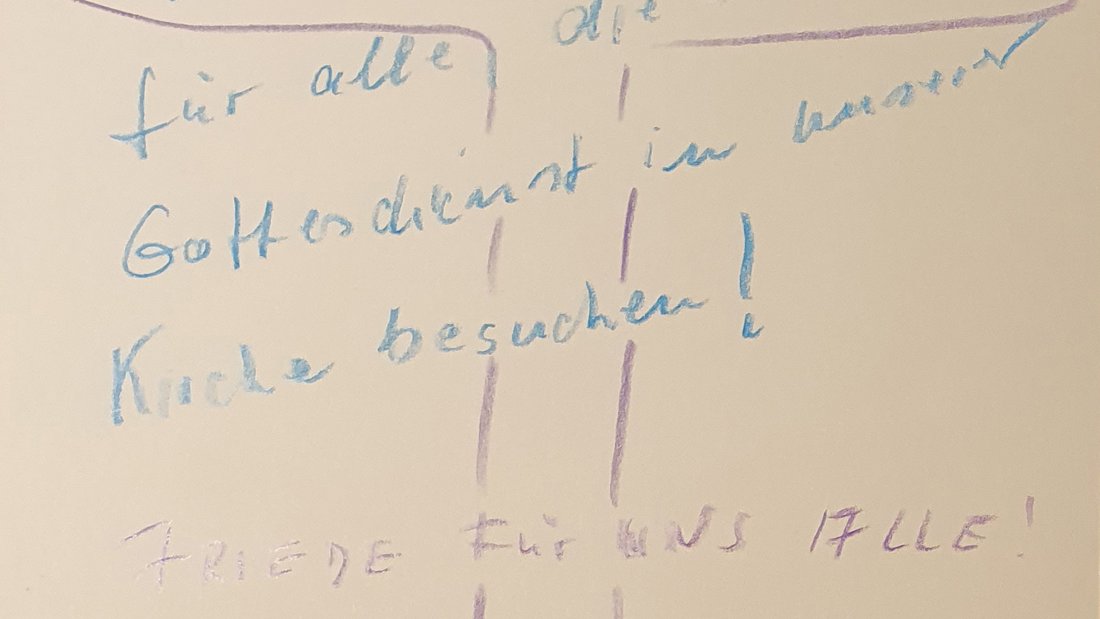 für alle die
Gottesdienst in unserer
Kirche besuchen!
FRIEDE FÜR UNS ALLE!